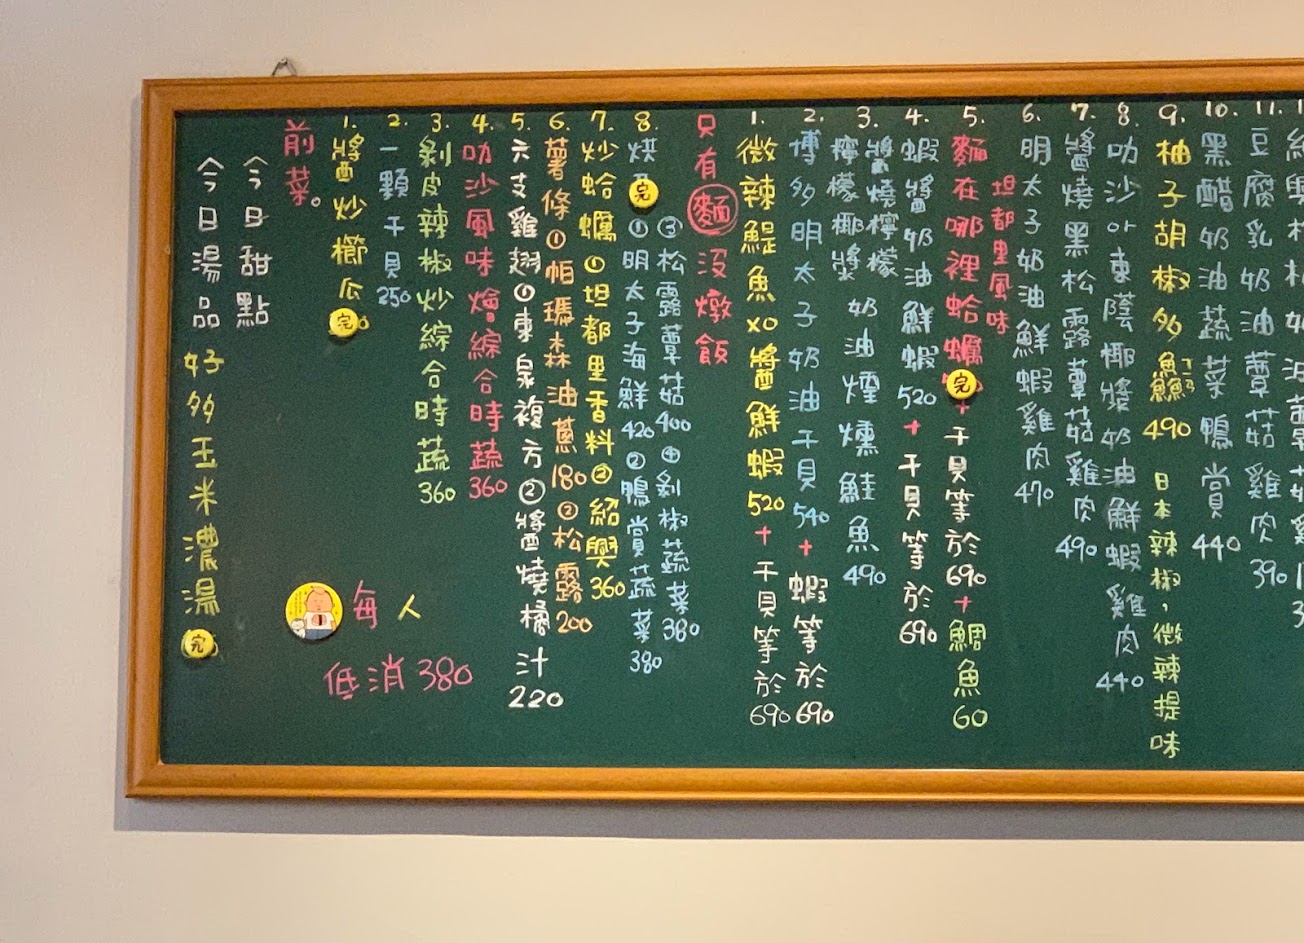 今日湯品 好多玉米濃湯 完
今日甜點
前菜。
1. 醬炒櫛瓜 完
2. 一顆干貝 250
3. 剝皮辣椒炒綜合時蔬 360
4. 叻沙風味燴綜合時蔬 360
5. 六支雞翅①東泉複方②醬燒橘汁 220
6. 薯條①帕瑪森油蔥180②松露200
7. 炒蛤蠣①坦都里香料②紹興 360
8. 烘 完 ①明太子海鮮420②鴨賞蔬菜380
③松露蕈菇400④剝椒蔬菜380
每人
低消380
只有麵沒燉飯
1. 微辣鯷魚XO醬鮮蝦 520+干貝等於690
2. 博多明太子奶油干貝 540+蝦等於690
3. 檸檬椰漿
醬燒檸檬
奶油煙燻鮭魚 490
4. 蝦醬奶油鮮蝦 520+干貝等於690
5. 麵在哪裡蛤蠣 完 +干貝等於690+鯛魚60
坦都里風味
6. 明太子奶油鮮蝦雞肉 470
7. 醬燒黑松露蕈菇雞肉 490
8. 叻沙or東蔭椰漿奶油鮮蝦雞肉 440
9. 柚子胡椒多鱻 490 日本辣椒，微辣提味
10. 黑醋奶油蔬菜鴨賞 440
11. 豆腐乳奶油蕈菇雞肉 390